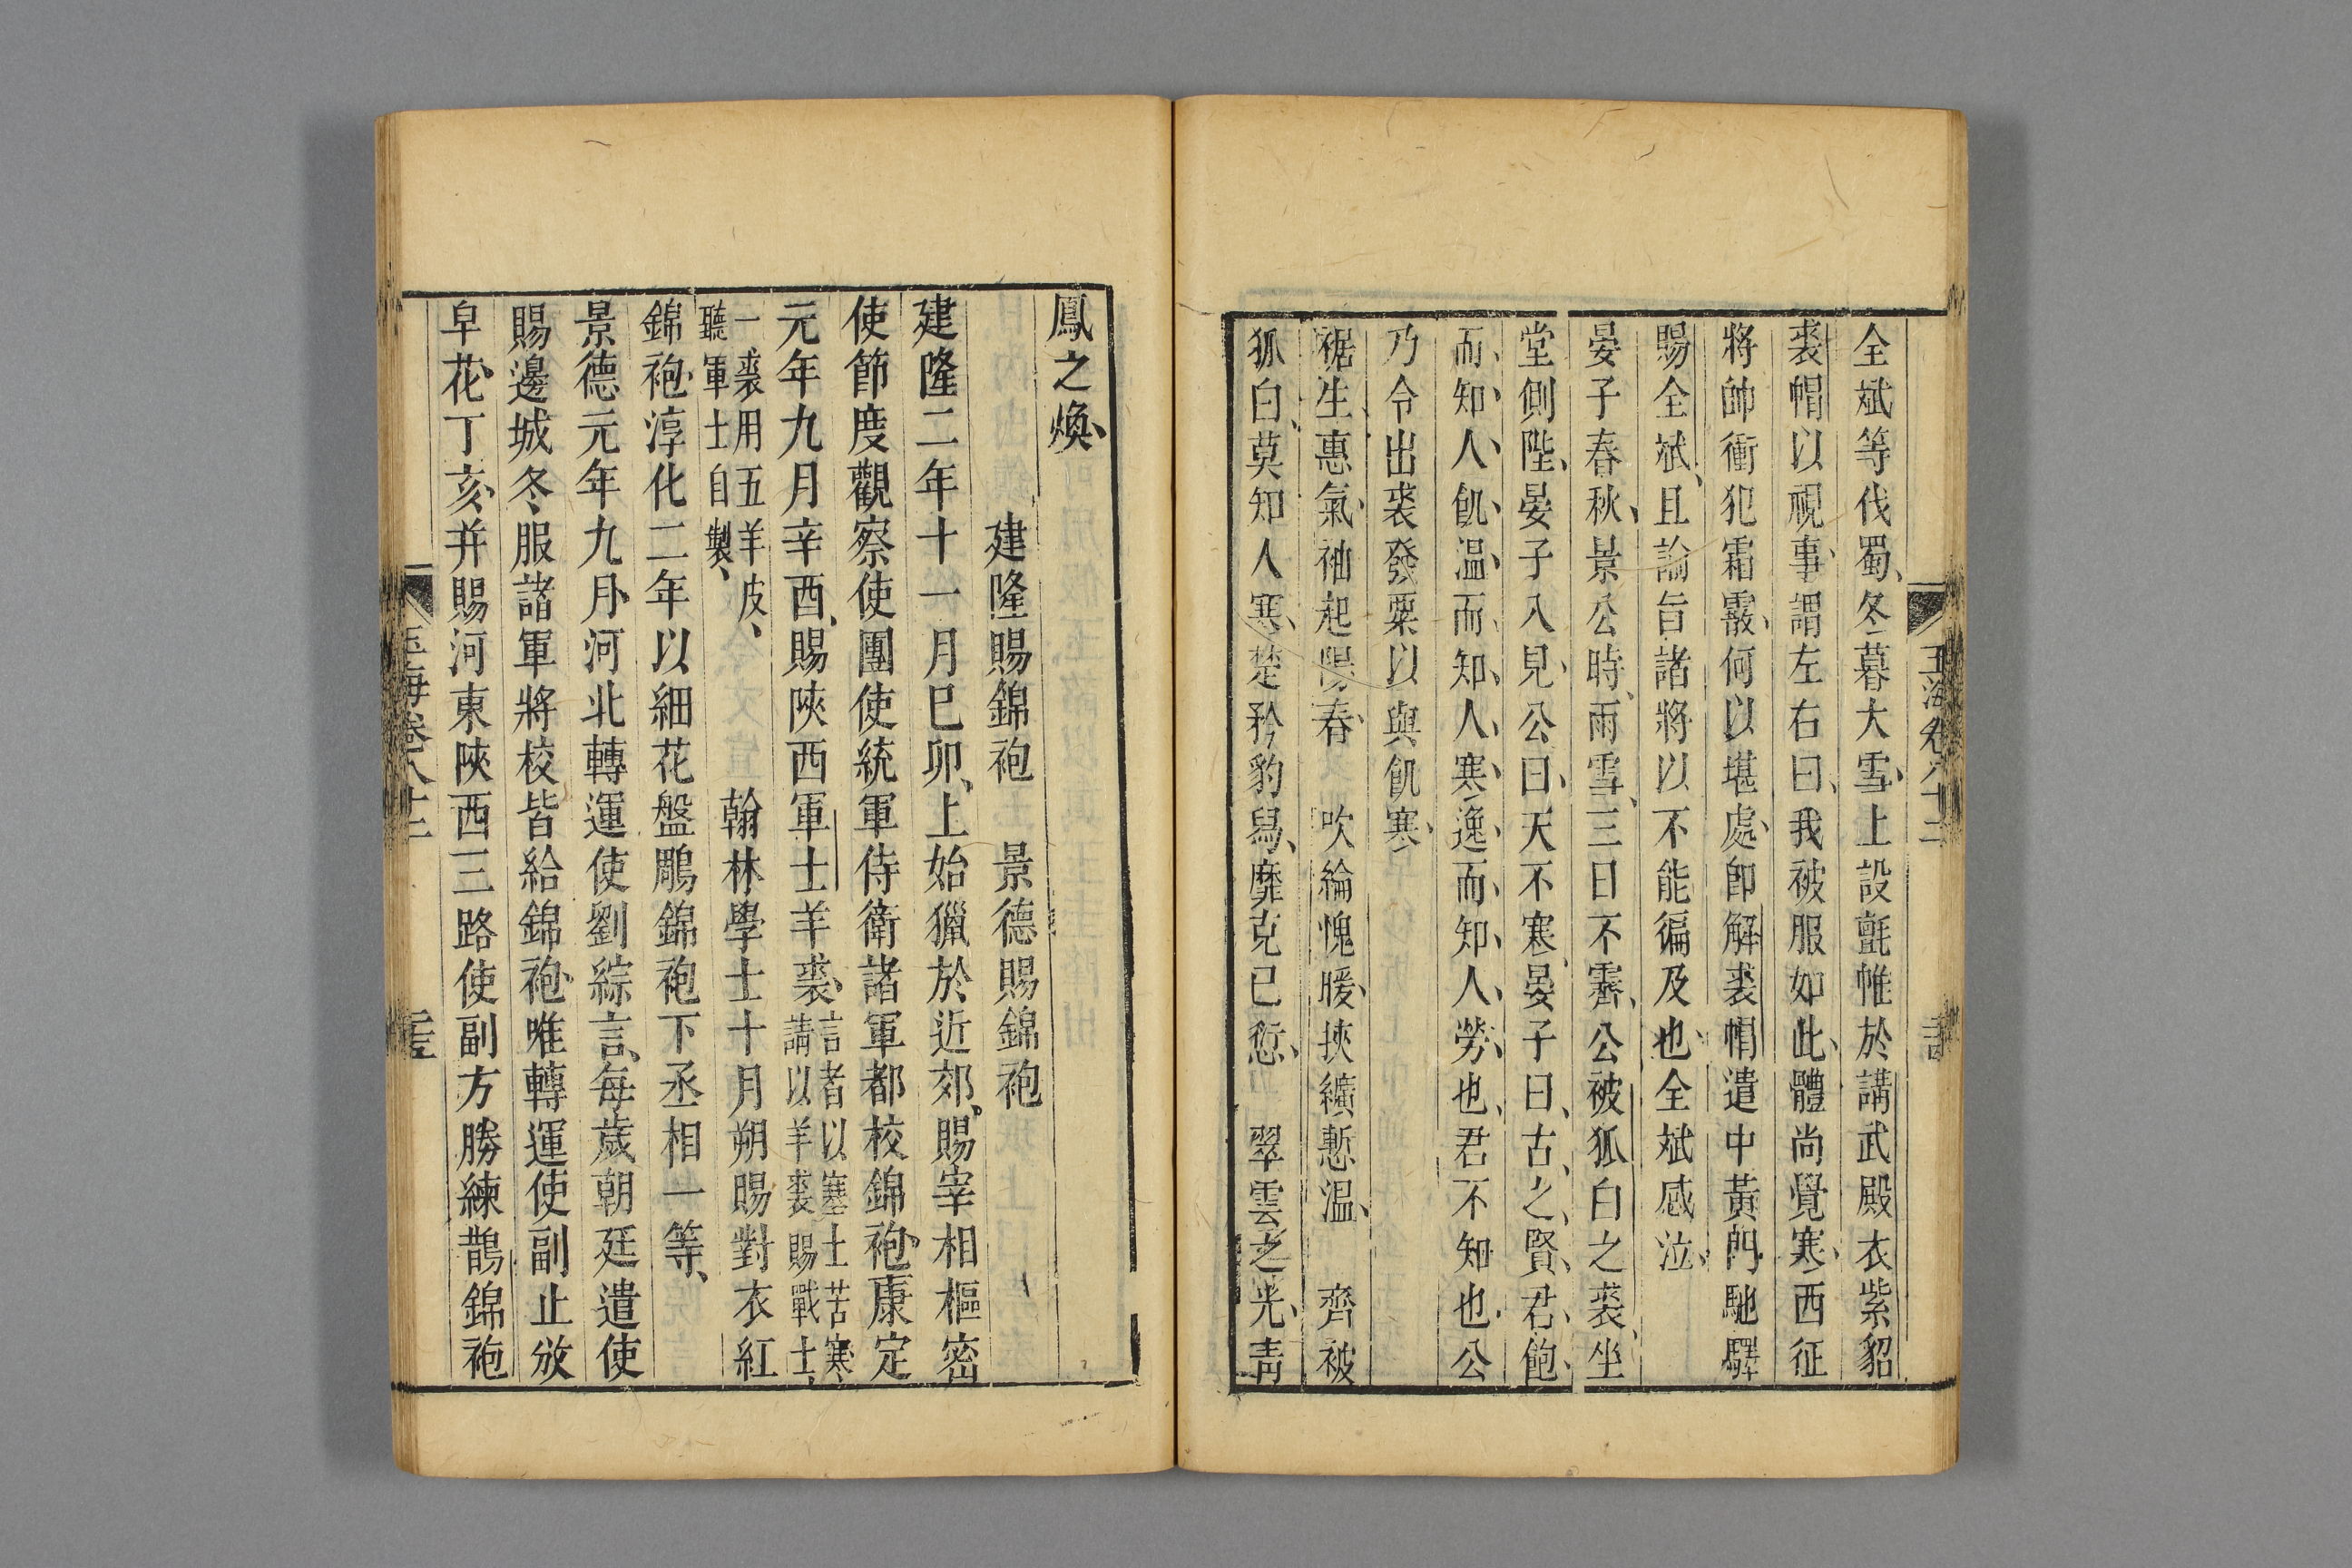 玉海卷八十二
全斌等伐蜀冬暮大雪上設氈帷於講武殿衣紫貂
裘帽以視事謂左右曰我被服如此體尚覺寒西征
將帥衝犯霜霰何以堪處卽解裘帽遣中黃門馳驛
賜全斌且諭旨諸將以不能徧及也全斌感泣
晏子春秋景公時雨雪三日不霽公被狐白之裘坐
堂側陛晏子入見公曰天不寒晏子曰古之賢君飽
而知人飢温而知人寒逸而知人勞也君不知也公
乃令出裘發粟以與飢寒
裾生惠氣袖起陽春 吹綸愧暖挾纊慙温 齊被
狐白莫知人寒楚矜豹舄靡克已愆 翠雲之光青
鳳之煥
建隆賜錦袍 景德賜錦袍
建隆二年十一月巳卯上始獵於近郊賜宰相樞密
使節度觀察使團使統軍侍衛諸軍都校錦袍康定
元年九月辛酉賜陝西軍士羊裘言者以塞士苦寒
請以羊裘賜戰士
一裘用五羊皮
聽軍士自製 翰林學士十月朔賜對衣紅
錦袍淳化二年以細花盤鵰錦袍下丞相一等
景德元年九月河北轉運使劉綜言每歲朝廷遣使
賜邊城冬服諸軍將校皆給錦袍唯轉運使副止放
皁花丁亥并賜河東陝西三路使副方勝練鵲錦袍
玉海卷八十二 二五